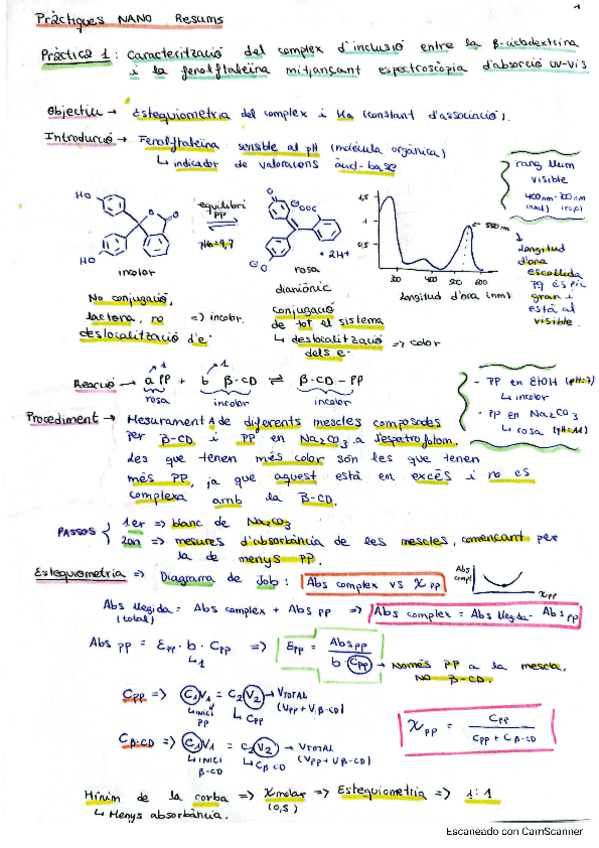 1
Pràctiques NANO Resums
Pràctica 1: Caracterització del complex d'inclusió entre la β-ciclodextrina
i la fenolftaleïna mitjançant espectroscòpia d'absorció UV-Vis
Objectiu → Estequiometria del complex i Ka (constant d'associació).
Introducció → Fenolftaleïna: sensible al pH (molècula orgànica)
↳ indicador de valoracions àcid-base
rang llum
visible
HO
HO
O
O
incolor
equilibri
PP
O
⊖OOC
⊖O
+ 2H+
rosa
dianiònic
1,5
1
0,5
300 400 500 600
longitud d'ona (nm)
550 nm
longitud
d'ona
escollida
pq és pic
gran i
està al
visible.
No conjugació,
lactona, no
deslocalització d'e-
=> incolor.
Conjugació
de tot el sistema
↳ deslocalització
dels e-
=> color
Reacció → a PP + b β-CD ⇌ β-CD-PP
1
1
rosa incolor incolor
- PP en EtOH (pH=7)
↳ incolor
- PP en Na2CO3
↳ rosa (pH=11)
Procediment → Mesurament A de diferents mescles composades
per β-CD i PP en Na2CO3 a l'espectrofotom.
Les que tenen més color són les que tenen
més PP, ja que aquest està en excés i no es
complexa amb la β-CD.
PASSOS
1er => blanc de Na2CO3
2on => mesures d'absorbància de les mescles, començant per
la de menys PP.
Estequiometria => Diagrama de Job: Abs complex vs χPP
Abs
compl
χPP
Abs llegida = Abs complex + Abs PP => Abs complex = Abs llegida - Abs PP
(total)
Abs PP = εPP · b · CPP => εPP = Abs PP / b · CPP → Només PP a la mescla,
↳ 1
NO β-CD.
CPP => C1V1 = C2V2 → VTOTAL
(VPP + Vβ-CD)
↳ INICI
PP
↳ CPP
χPP = CPP / CPP + Cβ-CD
Cβ-CD => C1V1 = C2V2 → VTOTAL
(VPP + Vβ-CD)
↳ INICI
β-CD
↳ Cβ-CD
Mínim de la corba => χmolar => Estequiometria => 1:1
(0,5)
↳ Menys absorbància.
Escaneado con CamScanner